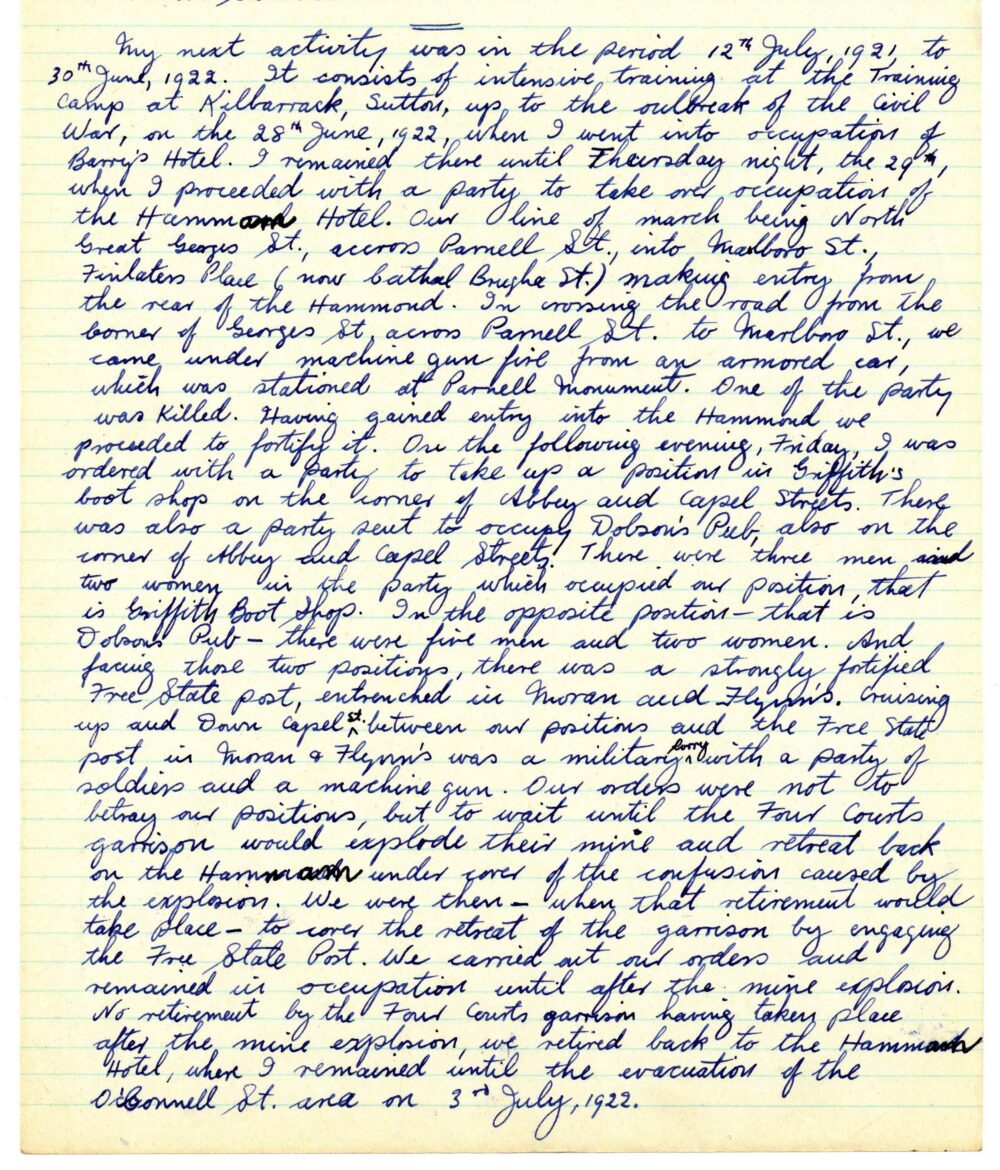 My next activity was in the period 12th July, 1921, to
30th June, 1922. It consists of intensive, training at the Training
Camp at Kilbarrack, Sutton, up to the outbreak of the Civil
War, on the 28th June, 1922, when I went into occupation of
Barry's Hotel. I remained there until Thursday night, the 29th,
when I proceeded with a party to take over occupation of
the Hammam Hotel. Our line of march being North
Great Georges St., accross Parnell St., into Marlboro St.,
Finlaters Place (now Cathal Brugha St.) making entry from
the rear of the Hammond. In crossing the road from the
corner of Georges St, across Parnell St. to Marlboro St., we
came under machine gun fire from an armored car,
which was stationed at Parnell Monument. One of the party
was Killed. Having gained entry into the Hammond we
proceeded to fortify it. On the following evening, Friday, I was
ordered with a party to take up a position in Griffith's
boot shop on the corner of Abbey and Capel Streets. There
was also a party sent to occupy Dobson's Pub, also on the
corner of Abbey and Capel Streets. There were three men and
two women in the party which occupied our position, that
is Griffith Boot Shop. In the opposite position - that is
Dobsons Pub - there were five men and two women. And
facing those two positions, there was a strongly fortified
Free State post, entrenched in Moran and Flynn's. Cruising
up and Down Capel St. between our positions and the Free State
post in Moran & Flynn's was a military lorry with a party of
soldiers and a machine gun. Our orders were not to
betray our positions, but to wait until the Four Courts
garrison would explode their mine and retreat back
on the Hammam under cover of the confusion caused by
the explosion. We were then - when that retirement would
take place - to cover the retreat of the garrison by engaging
the Free State Post. We carried out our orders and
remained in occupation until after the mine explosion.
No retirement by the Four Courts garrison having taken place
after the mine explosion, we retired back to the Hammam
Hotel, where I remained until the evacuation of the
O'Connell St. area on 3rd July, 1922.